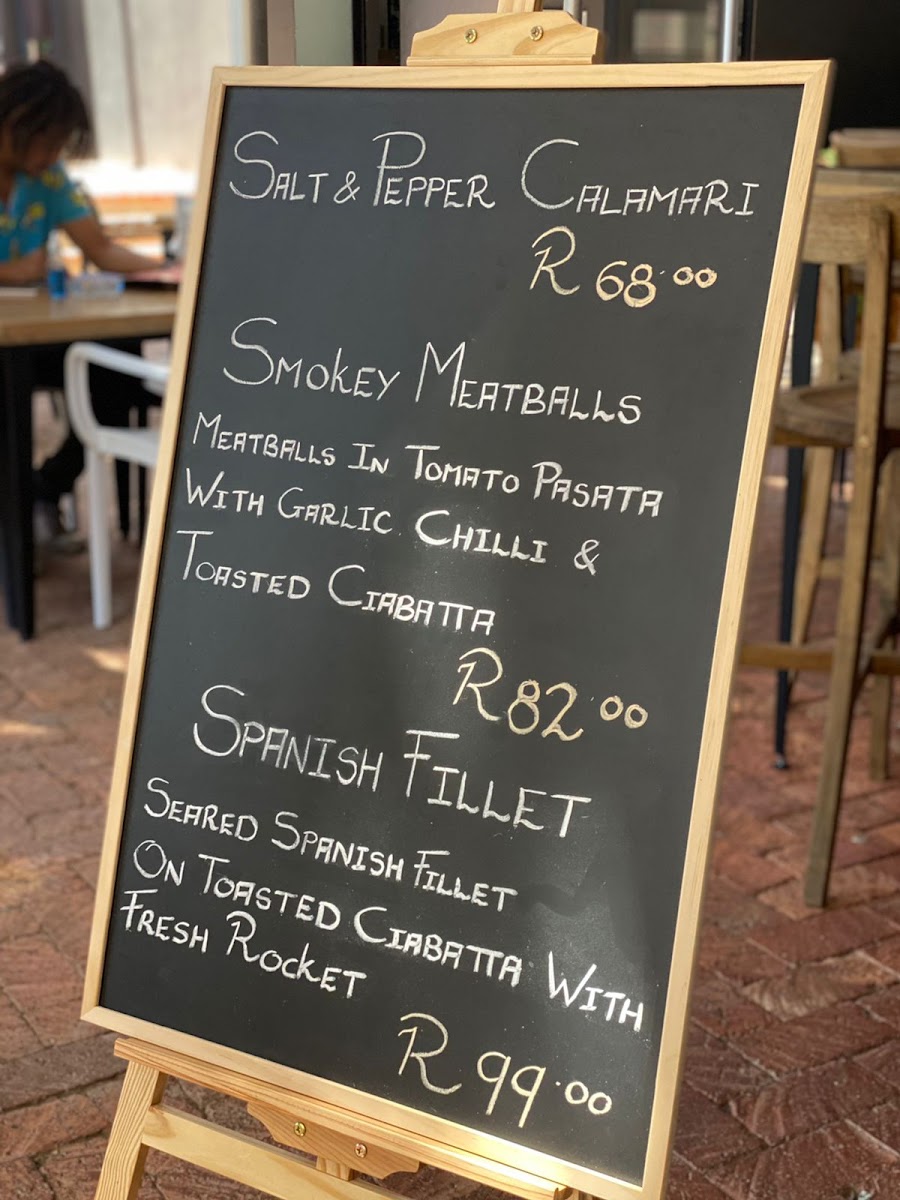 SALT & PEPPER CALAMARI
R 68.00
SMOKEY MEATBALLS
MEATBALLS IN TOMATO PASATA
WITH GARLIC CHILLI &
TOASTED CIABATTA
R82.00
SPANISH FILLET
SEARED SPANISH FILLET
ON TOASTED CIABATTA WITH
FRESH ROCKET
R 99.00